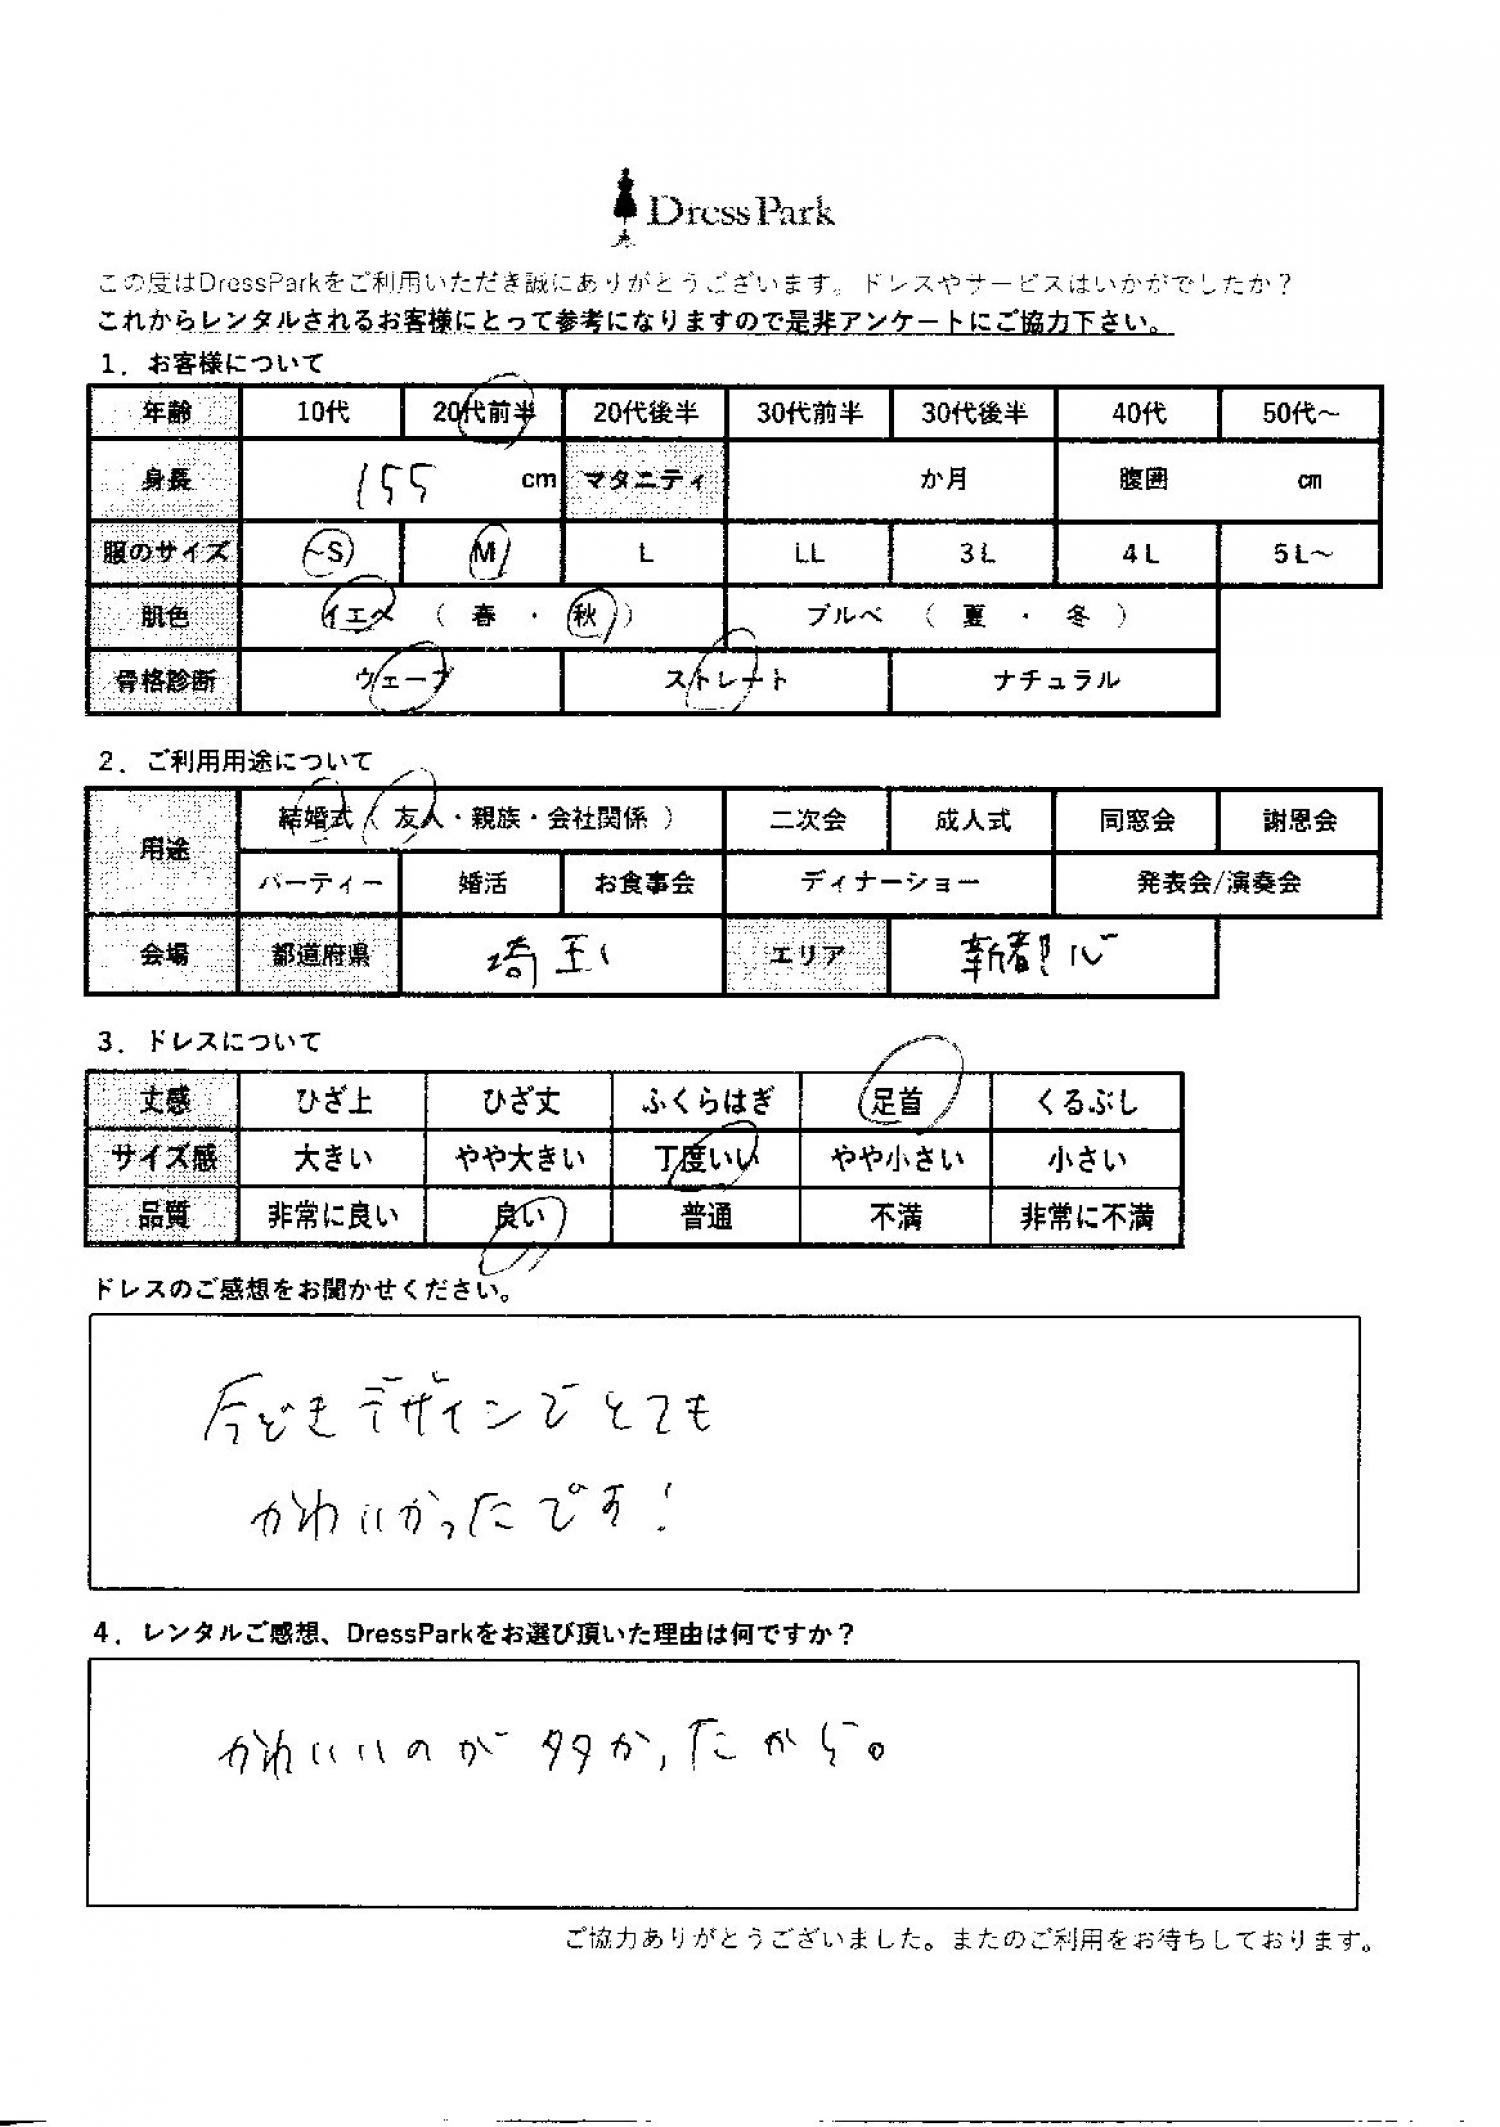 DressPark
この度はDressParkをご利用いただき誠にありがとうございます。ドレスやサービスはいかがでしたか？
これからレンタルされるお客様にとって参考になりますので是非アンケートにご協力下さい。
1．お客様について
年齢 10代 20代前半 20代後半 30代前半 30代後半 40代 50代～
身長 155 cm マタニティ か月 腹囲 cm
服のサイズ ～S M L LL 3L 4L 5L～
肌色 イエベ（ 春 ・ 秋 ） ブルベ（ 夏 ・ 冬 ）
骨格診断 ウェーブ ストレート ナチュラル
2．ご利用用途について
用途 結婚式（ 友人・親族・会社関係 ） 二次会 成人式 同窓会 謝恩会
パーティー 婚活 お食事会 ディナーショー 発表会/演奏会
会場 都道府県 埼玉 エリア 新都心
3．ドレスについて
丈感 ひざ上 ひざ丈 ふくらはぎ 足首 くるぶし
サイズ感 大きい やや大きい 丁度いい やや小さい 小さい
品質 非常に良い 良い 普通 不満 非常に不満
ドレスのご感想をお聞かせください。
今どきデザインでとても
かわいかったです！
4．レンタルご感想、DressParkをお選び頂いた理由は何ですか？
かわいいのが多かったから。
ご協力ありがとうございました。またのご利用をお待ちしております。